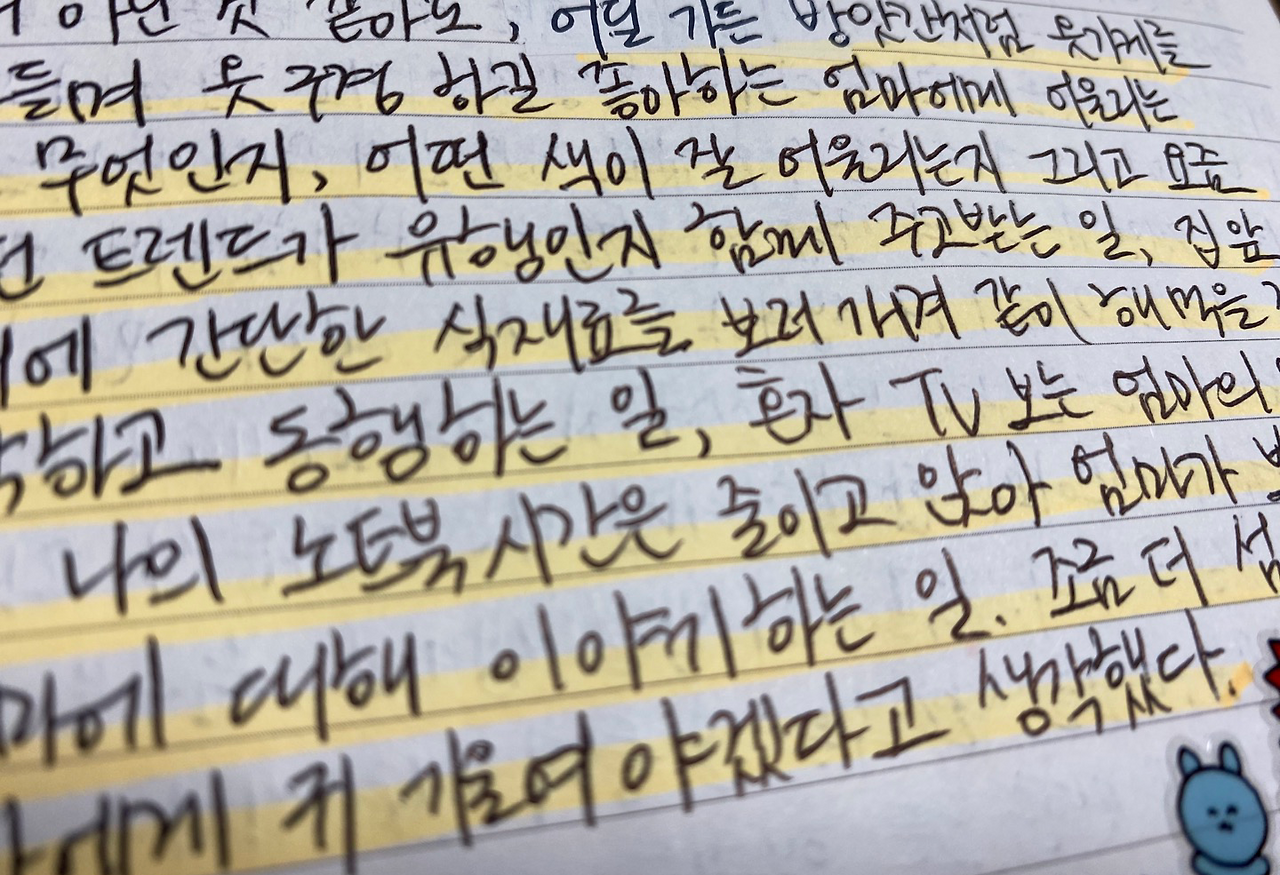 아닌 것 같아도, 어딜 가든 방앗간처럼 옷가게를
들며 옷 구경 하길 좋아하는 엄마에게 어울리는
무엇인지, 어떤 색이 잘 어울리는지 그리고 요즘
트렌드가 유행인지 함께 주고받는 일, 집 앞
에 간단한 식재료를 보러 가며 같이 해먹을
하고 동행하는 일, 혼자 TV 보는 엄마의
나의 노트북 시간은 줄이고 앉아 엄마가
대해 이야기하는 일. 조금 더
에게 귀 기울여야겠다고 생각했다.